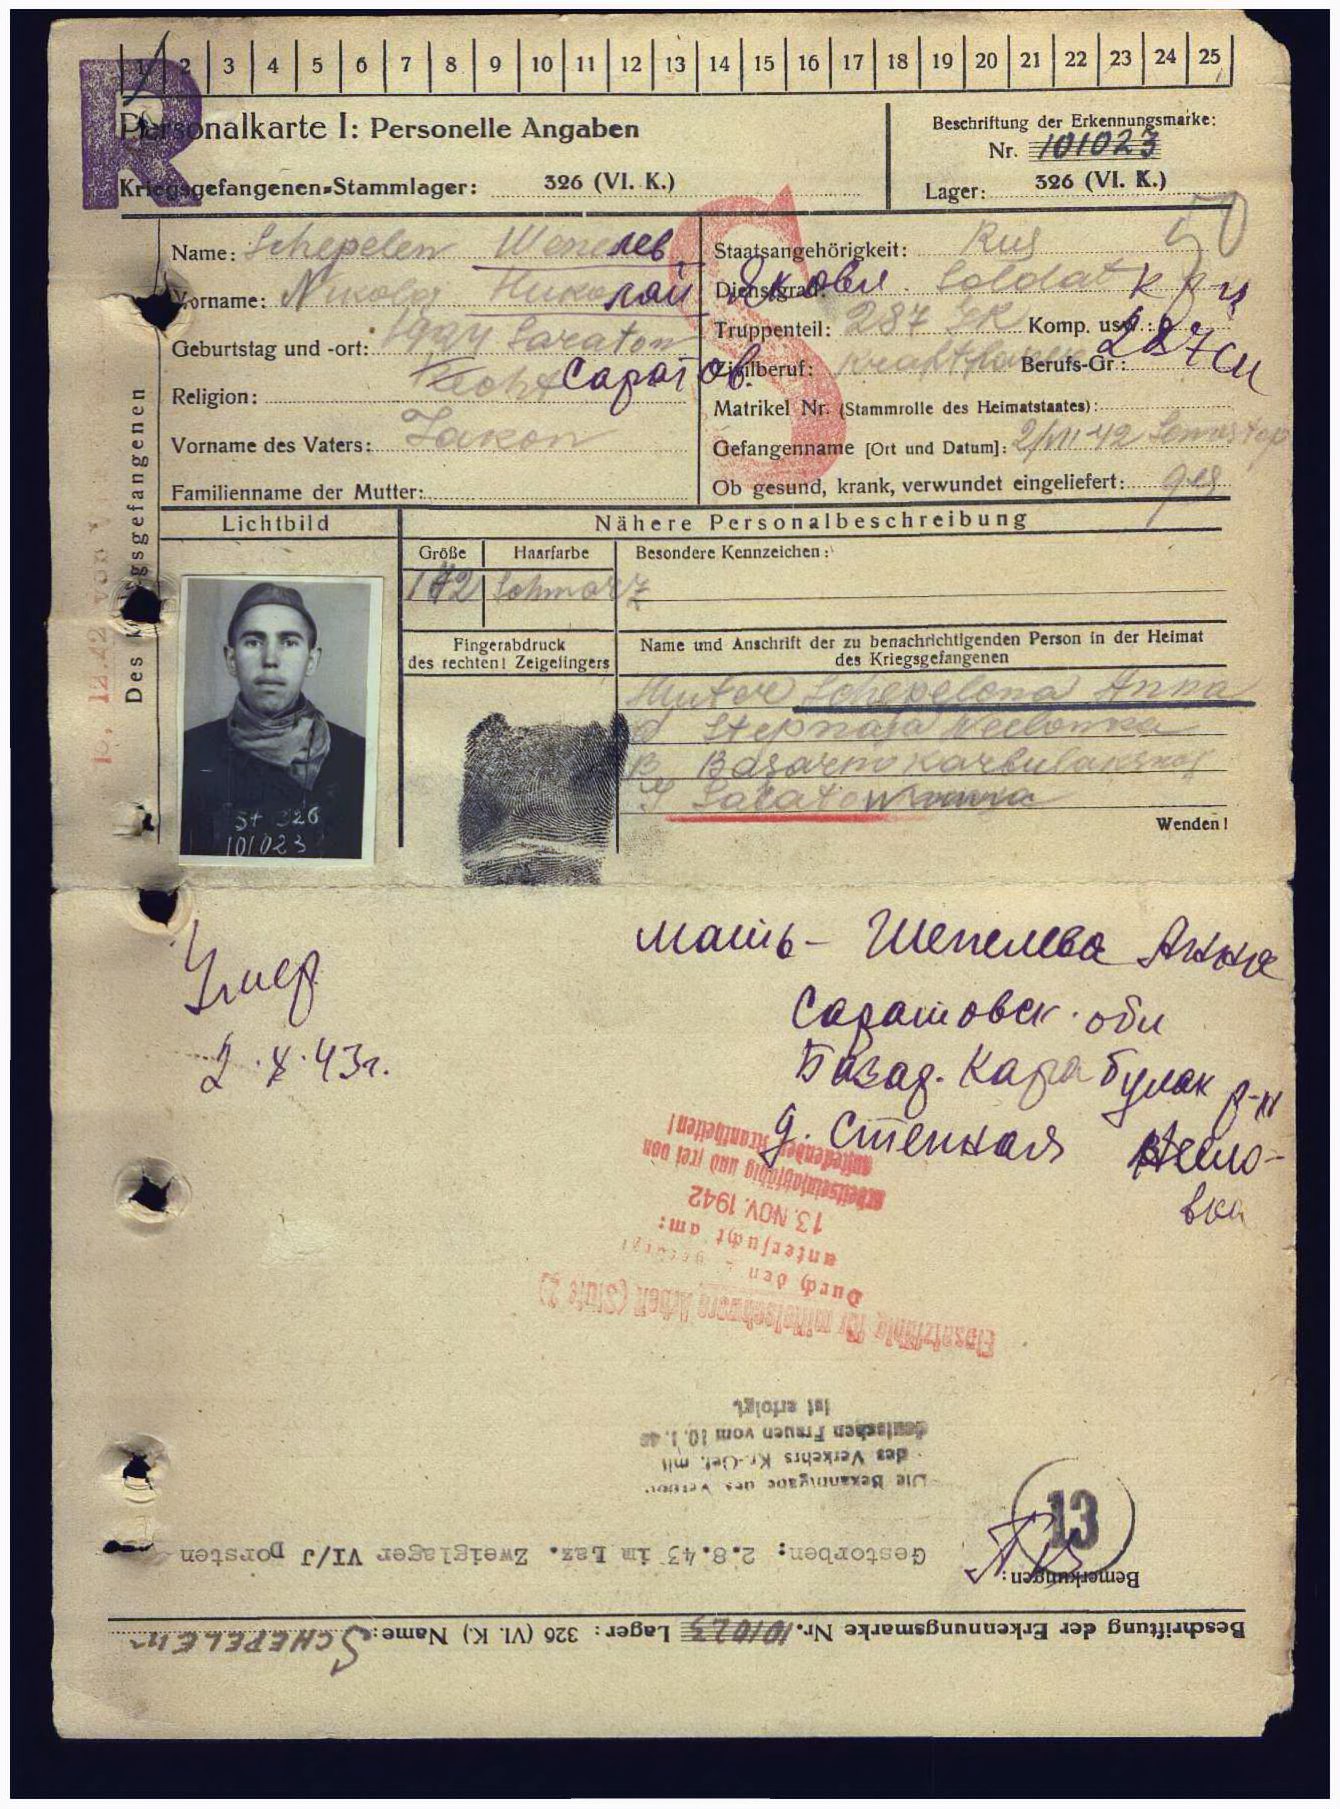 1 2 3 4 5 6 7 8 9 10 11 12 13 14 15 16 17 18 19 20 21 22 23 24 25
R
Personalkarte I: Personelle Angaben
Kriegsgefangenen-Stammlager: 326 (VI. K.)
Beschriftung der Erkennungsmarke:
Nr. 101023
Lager: 326 (VI. K.)
S
Des Kriegsgefangenen
Name: Schepelew Шепелев
Vorname: Nikolaj Николай Яковл.
Geburtstag und -ort: Saratow
Саратов.
Religion:
Vorname des Vaters: Jakow
Familienname der Mutter:
Staatsangehörigkeit: Rus
Dienstgrad: Soldat
Truppenteil: 287 Komp. usw.: 287
Zivilberuf: Berufs-Gr.:
Matrikel Nr. (Stammrolle des Heimatstaates):
Gefangenname [Ort und Datum]: 2/VII 42
Ob gesund, krank, verwundet eingeliefert: ges
Lichtbild
St 326
101023
Nähere Personalbeschreibung
Größe Haarfarbe Besondere Kennzeichen:
172 Schwarz
Fingerabdruck
des rechten! Zeigefingers
Name und Anschrift der zu benachrichtigenden Person in der Heimat
des Kriegsgefangenen
Mutter Schepelewa Anna
Stepnaja Neelowka
Basarno Karbulakskoj
Wenden!
Умер
2.X.43г.
мать - Шепелева Анна
Саратовск. обл
Базар. Карабулак р-н
д. Степная Неело-
вка
Einsatzfähig für mittelschwere Arbeit (Stufe 2)
Durch den
untersucht am:
13. NOV. 1942
arbeitseinsatzfähig und frei von
ansteckenden Krankheiten!
Die Bekanntgabe des
des Verkehrs Kr.-Gef. mit
deutschen Frauen vom 10.1.40
ist erfolgt
13
Bemerkungen:
Gestorben: 2.8.43 im Laz. Zweiglager VI/J Dorsten
Beschriftung der Erkennungsmarke Nr. 101023 Lager: 326 (VI. K.) Name: SCHEPELEW